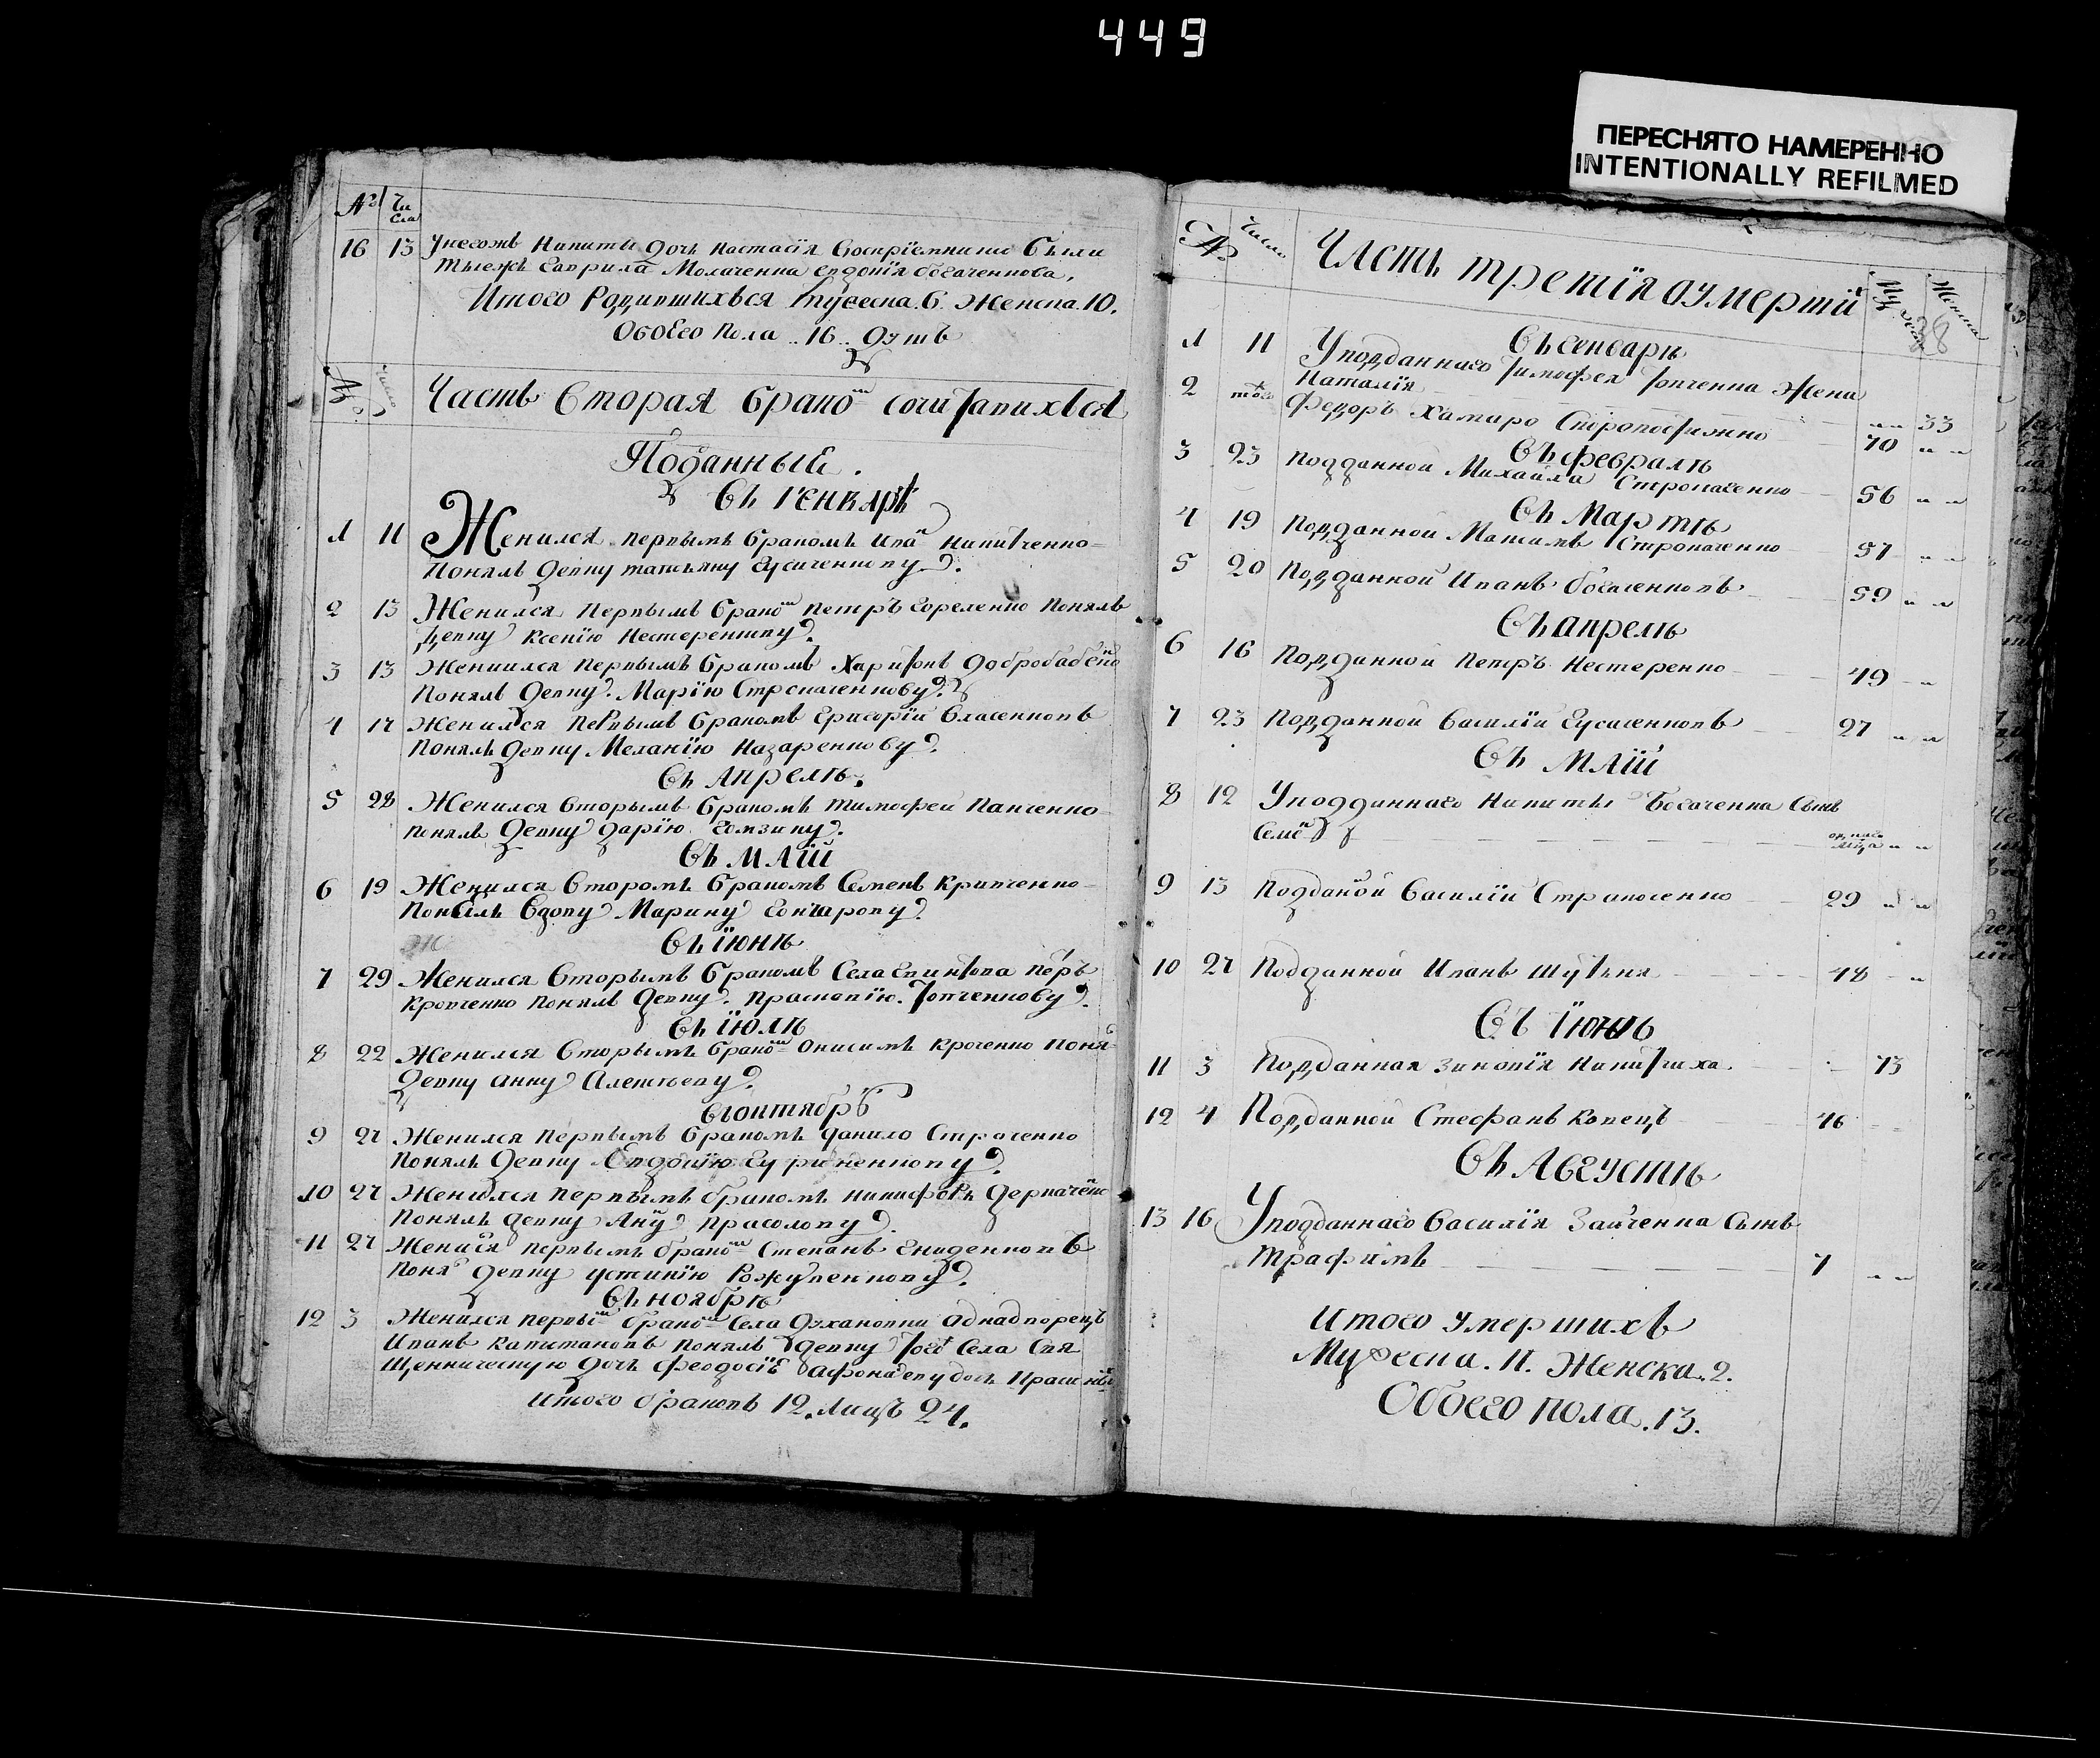 449
ПЕРЕСНЯТО НАМЕРЕННО
INTENTIONALLY REFILMED
№ Чи
сла
16 13 Унегожъ Никиты дочь Настасїя Воспрїемники были
тыежъ Гаврила Молаченка Евдокїя богаченкова,
Итого Родившихъся Мужеска. 6. Женска. 10.
Обоего пола .. 16 .. Душъ
№ Число Часть Вторая брако᷃м сочитавихъся
Поданные.
Въ генварѣ
1 11 Женился первымъ бракомъ Ива᷃ Никитченко
Понялъ девку татьяну Гусаченкову.
2 13 Женился первымъ брако᷃м петръ Гореленко Понялъ
девку Ксенїю Нестеренкову.
3 13 Женишлся первымъ бракомъ Харитонъ добробабенко
Понялъ девку. Марїю Строкаченкову.
4 17 Женился первымъ бракомъ Григорїй Власенковъ
Понялъ девку Меланїю Назаренкову.
Въ Апрелѣ.
5 28 Женился вторымъ бракомъ Тимофей Панченко
понялъ девку дарїю Гомзину.
Въ Маїй
6 19 Женился Второмъ бракомъ Семенъ Кривченко
Понялъ Вдову Марину Гончарову.
Въ їюнѣ
7 29 Женился Вторымъ бракомъ Села
Кровченко Понялъ девку. Прасковїю. Товченкову.
Въ їюлѣ
8 22 Женился Вторымъ брако᷃м Онисимъ Кроченко Поня
девку анну Алексееву.
Въ октябрѣ
9 27 Женился Первымъ бракомъ данило Строченко
Понялъ девку Евдокїю
10 27 Женился первымъ бракомъ никифоръ деркаченко
Понялъ девку Анну Прасолову.
11 27 Женился первымъ брако᷃м Степанъ
Поня девку устинїю Рожуленкову.
Въ ноябрѣ
12 3 Женился первы᷃м брако᷃м Села аднадворецъ
Иванъ Капистановъ понялъ девку того Села Свя
щенническую дочь Феодосїю
Итого браковъ 12. Лицъ 24.
№ Число Часть третїя оумертїи Мужеска Женска
38
Въ генварѣ
1 11 Уподданнаго Тимофея Товченка Жена
Наталїя 33
2 тогож Федоръ Хамаро Скоропостижно 70
Въ февралѣ
3 23 Подданной Михайла Строкаченко 56
Въ Мартѣ
4 19 Подданной Максимъ Строкаченко 57
5 20 Подданной Иванъ богаченковъ 59
Въ апрелѣ
6 16 Подданной Петръ Нестеренко 49
7 23 Подданной Василїй Гусаченковъ 27
Въ Маїй
8 12 Уподданнаго Никиты Богаченка Сынъ
Семе᷃н
9 13 Подданой Василїй Строкоченко 29
10 27 Подданной Иванъ Шутька 48
Въ їюнѣ
11 3 Подданная Зиновїя Никитчиха 73
12 4 Подданной Стефанъ Ковецъ 46
Въ Августѣ
13 16 Уподданнаго Василїя Зайченка Сынъ
Трафимъ 7
Итого умершихъ
Мужеска. 11. Женска. 2.
Обоего пола. 13.